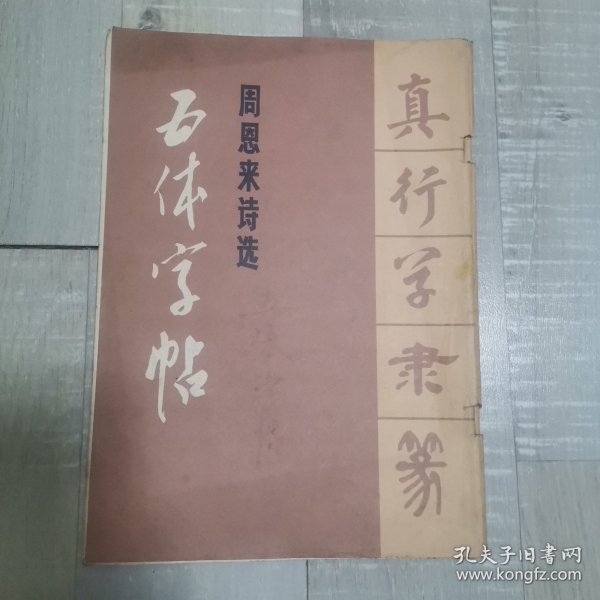 真
行
草
隶
篆
周恩来诗选
五体字帖
孔夫子旧书网
www.kongfz.com